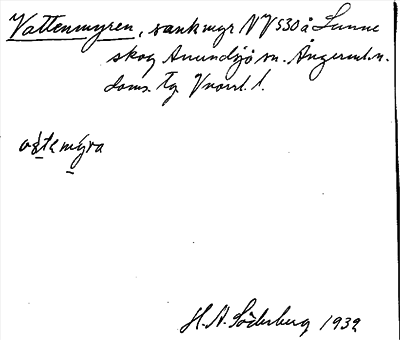 Vattenmyren, sankmyr NV 530 å Sunne
skog Anundsjö sn. Ångerml. n.
doms. tg. Vnorrl. l.
ośtemýra
H. A. Söderberg 1932